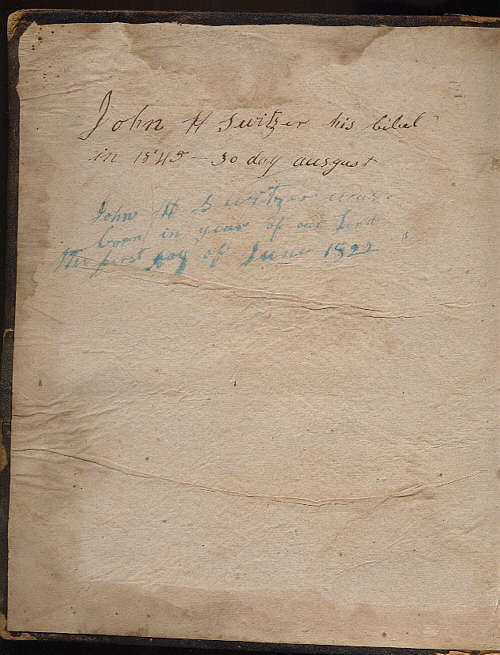 John H Switzer his bibel
in 1845 - 30 day ausgust
John H Switzer was
born in year of our Lord
the first day of June 1822